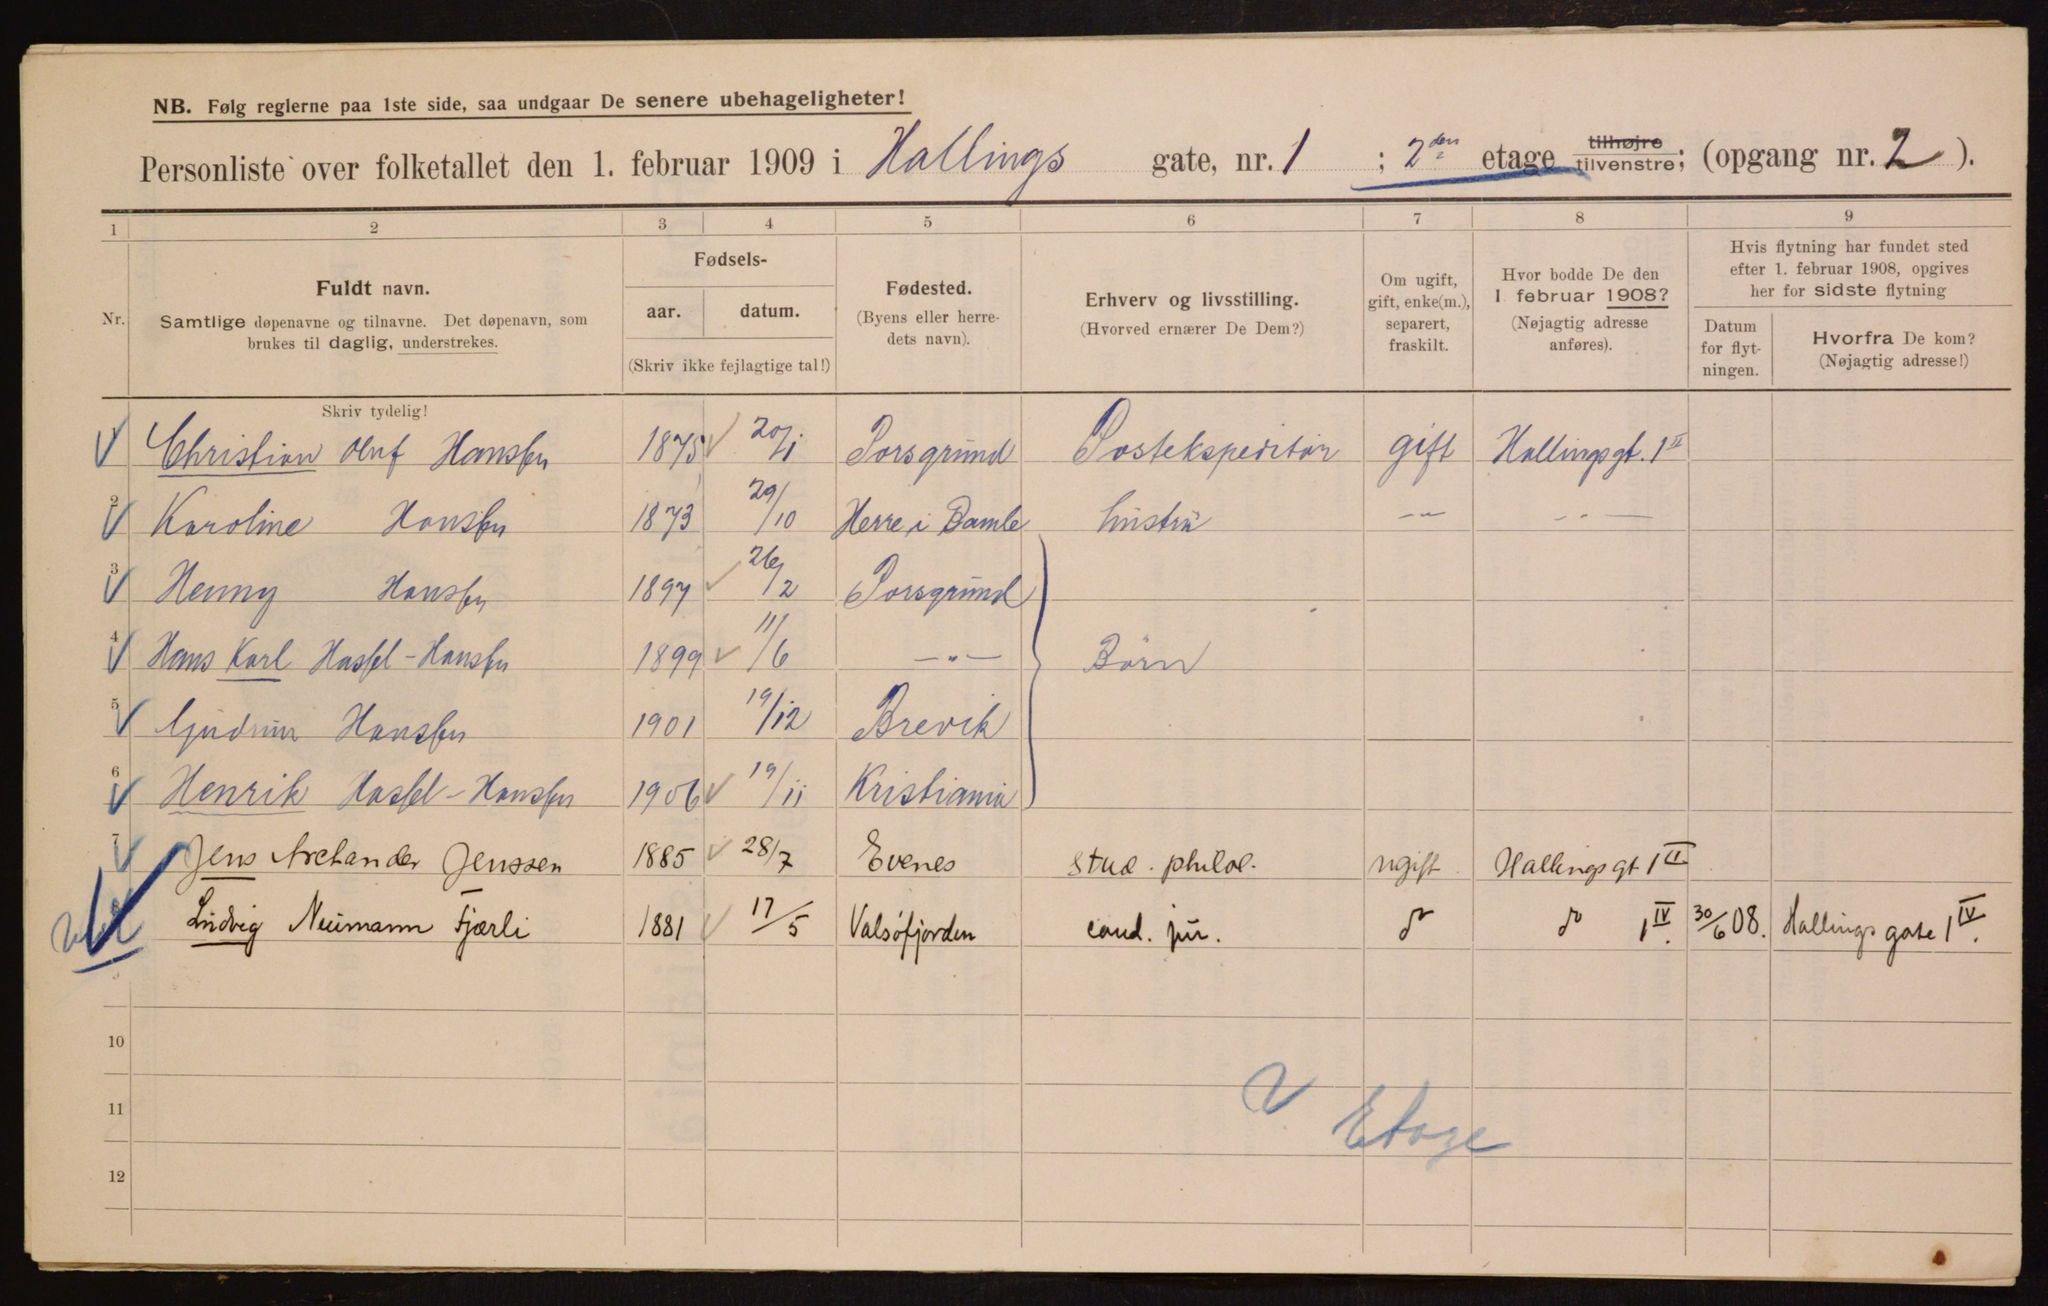 NB. Følg reglerne paa 1ste side, saa undgaar De senere ubehageligheter!
Personliste over folketallet den 1. februar 1909 i Hallings gate, nr. 1 ; 2den etage tilhøjre tilvenstre; (opgang nr. 2 ).
1 2 3 4 5 6 7 8 9
Nr.
Fuldt navn.
Samtlige døpenavne og tilnavne. Det døpenavn, som
brukes til daglig, understrekes.
Fødsels-
aar. datum.
(Skriv ikke fejlagtige tal!)
Fødested.
(Byens eller herre-
dets navn).
Erhverv og livsstilling.
(Hvorved ernærer De Dem?)
Om ugift,
gift, enke(m.),
separert,
fraskilt.
Hvor bodde De den
1 februar 1908?
(Nøjagtig adresse
anføres).
Hvis flytning har fundet sted
efter 1. februar 1908, opgives
her for sidste flytning
Datum
for flyt-
ningen.
Hvorfra De kom?
(Nøjagtig adresse!)
Skriv tydelig!
1 Christian Oluf Hansen 1875 20/1 Porsgrund Postekspeditør gift Hallingsgt. 1 II
2 Karoline Hansen 1873 29/10 Herre i Bamle hustru -"- -"-
3 Henny Hansen 1897 26/2 Porsgrund
4 Hans Karl Hassel-Hansen 1899 11/6 -"- Børn
5 Gudrun Hansen 1901 19/12 Brevik
6 Henrik Hassel-Hansen 1906 19/11 Kristiania
7 Jens Archander Jenssen 1885 28/7 Evenes stud. philol. ugift Hallingsgt 1 II
8 Ludvig Neumann Fjærli 1881 17/5 Valsøfjorden cand. jur. do do 1 IV. 30/6 08. Hallings gate 1 IV.
9
10
11
12
V Etage